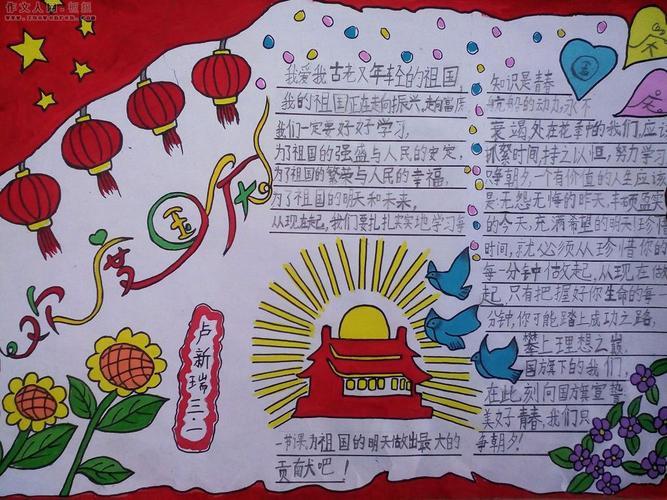 作文人网·恒组
www.zuowenren.com
欢度国庆
我爱我古老又年轻的祖国,
我的祖国正在走向振兴,走向富庶
我们一定要好好学习,
为了祖国的强盛与人民的安定,
为了祖国的繁荣与人民的幸福,
为了祖国的明天和未来,
从现在起,我们要扎扎实实地学习每
一节课,为祖国的明天做出最大的
贡献吧!
知识是青春
航船的动力,永不
衰竭处在花季的我们,应
抓紧时间,持之以恒,努力学习
争朝夕一个有价值的人生应该
是:无怨无悔的昨天,丰硕盈实
的今天,充满希望的明天!珍惜
时间,就必须从珍惜你的
每一分钟做起,从现在做
起,只有把握好你生命的每一
分钟,你可能踏上成功之路,
攀上理想之巅
国旗下的我们,
在此,刻向国旗宣誓
美好青春,我们只
争朝夕!
卢新瑞三.